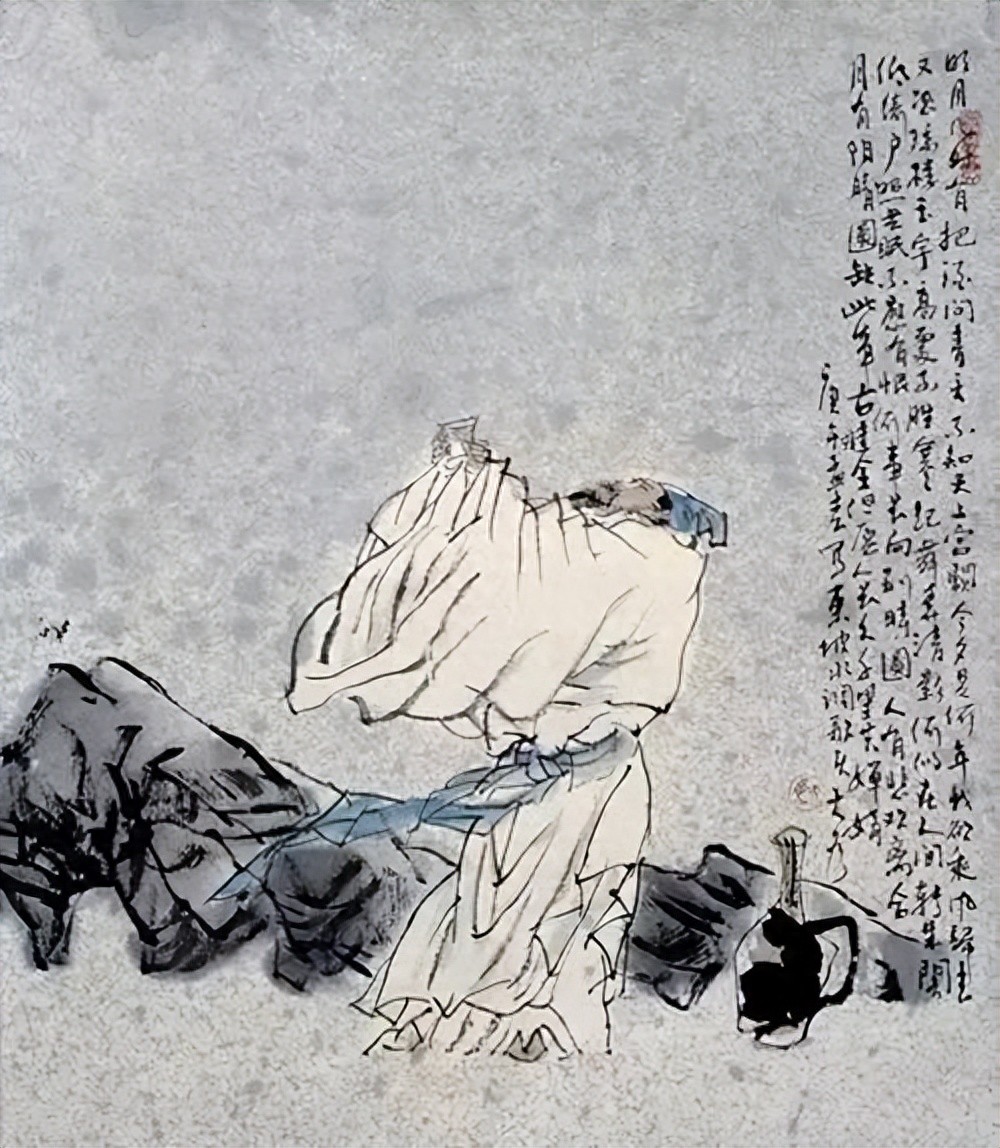 明月几时有把酒问青天不知天上宫闕今夕是何年我欲乘风歸去
又恐瓊樓玉宇高處不胜寒起舞弄清影何似在人间轉朱閣
低綺户照无眠不應有恨何事长向别時圓人有悲欢离合
月有阴晴圓缺此事古難全但愿人长久千里共嬋娟
庚午孟春写東坡水调歌头